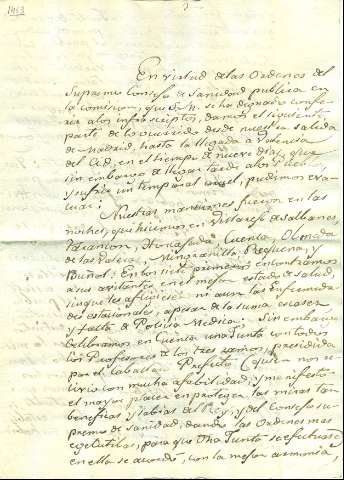 1413
En virtud de las Ordenes del
Supremo Consejo de Sanidad publica en
la comision, que S. M. se ha dignado confe-
rir a los infrascriptos, damos el siguiente
parte de lo ocurrido desde nuestra salida
de Madrid, hasta la llegada a Valencia
del Cid, en el tiempo de nueve dias, que
sin embargo de llegar tarde a los
y sufrir un temporal cruel, pudimos eva-
cuar:
Nuestras mansiones fueron en las
noches, que hicimos en Villarejo de Salbanes,
Tarancon, Cuenca, Olmada
de las Valeras, Minglanilla, Requena, y
Buñol: En los siete primeros encontramos
a sus avitantes en el mejor estado de salud,
sin que les afligiese ni aun las Enfermeda-
des estacionales, a pesar de la suma escasez
y falta de Policia Medica: Sin embargo
celebramos en Cuenca una Junta con todos
los Profesores de los tres ramos, presidida
por el Caballero Prefecto: Quien nos re-
civio con mucha afabilidad, y manifesto
el mayor placer en proteger las miras tan
beneficas, y sabias del Rey, y del Consejo su-
premo de Sanidad, dando las Ordenes mas
egecutibas, para que dha Junta se efectuase:
en ella se acordó, con la mejor armonia,